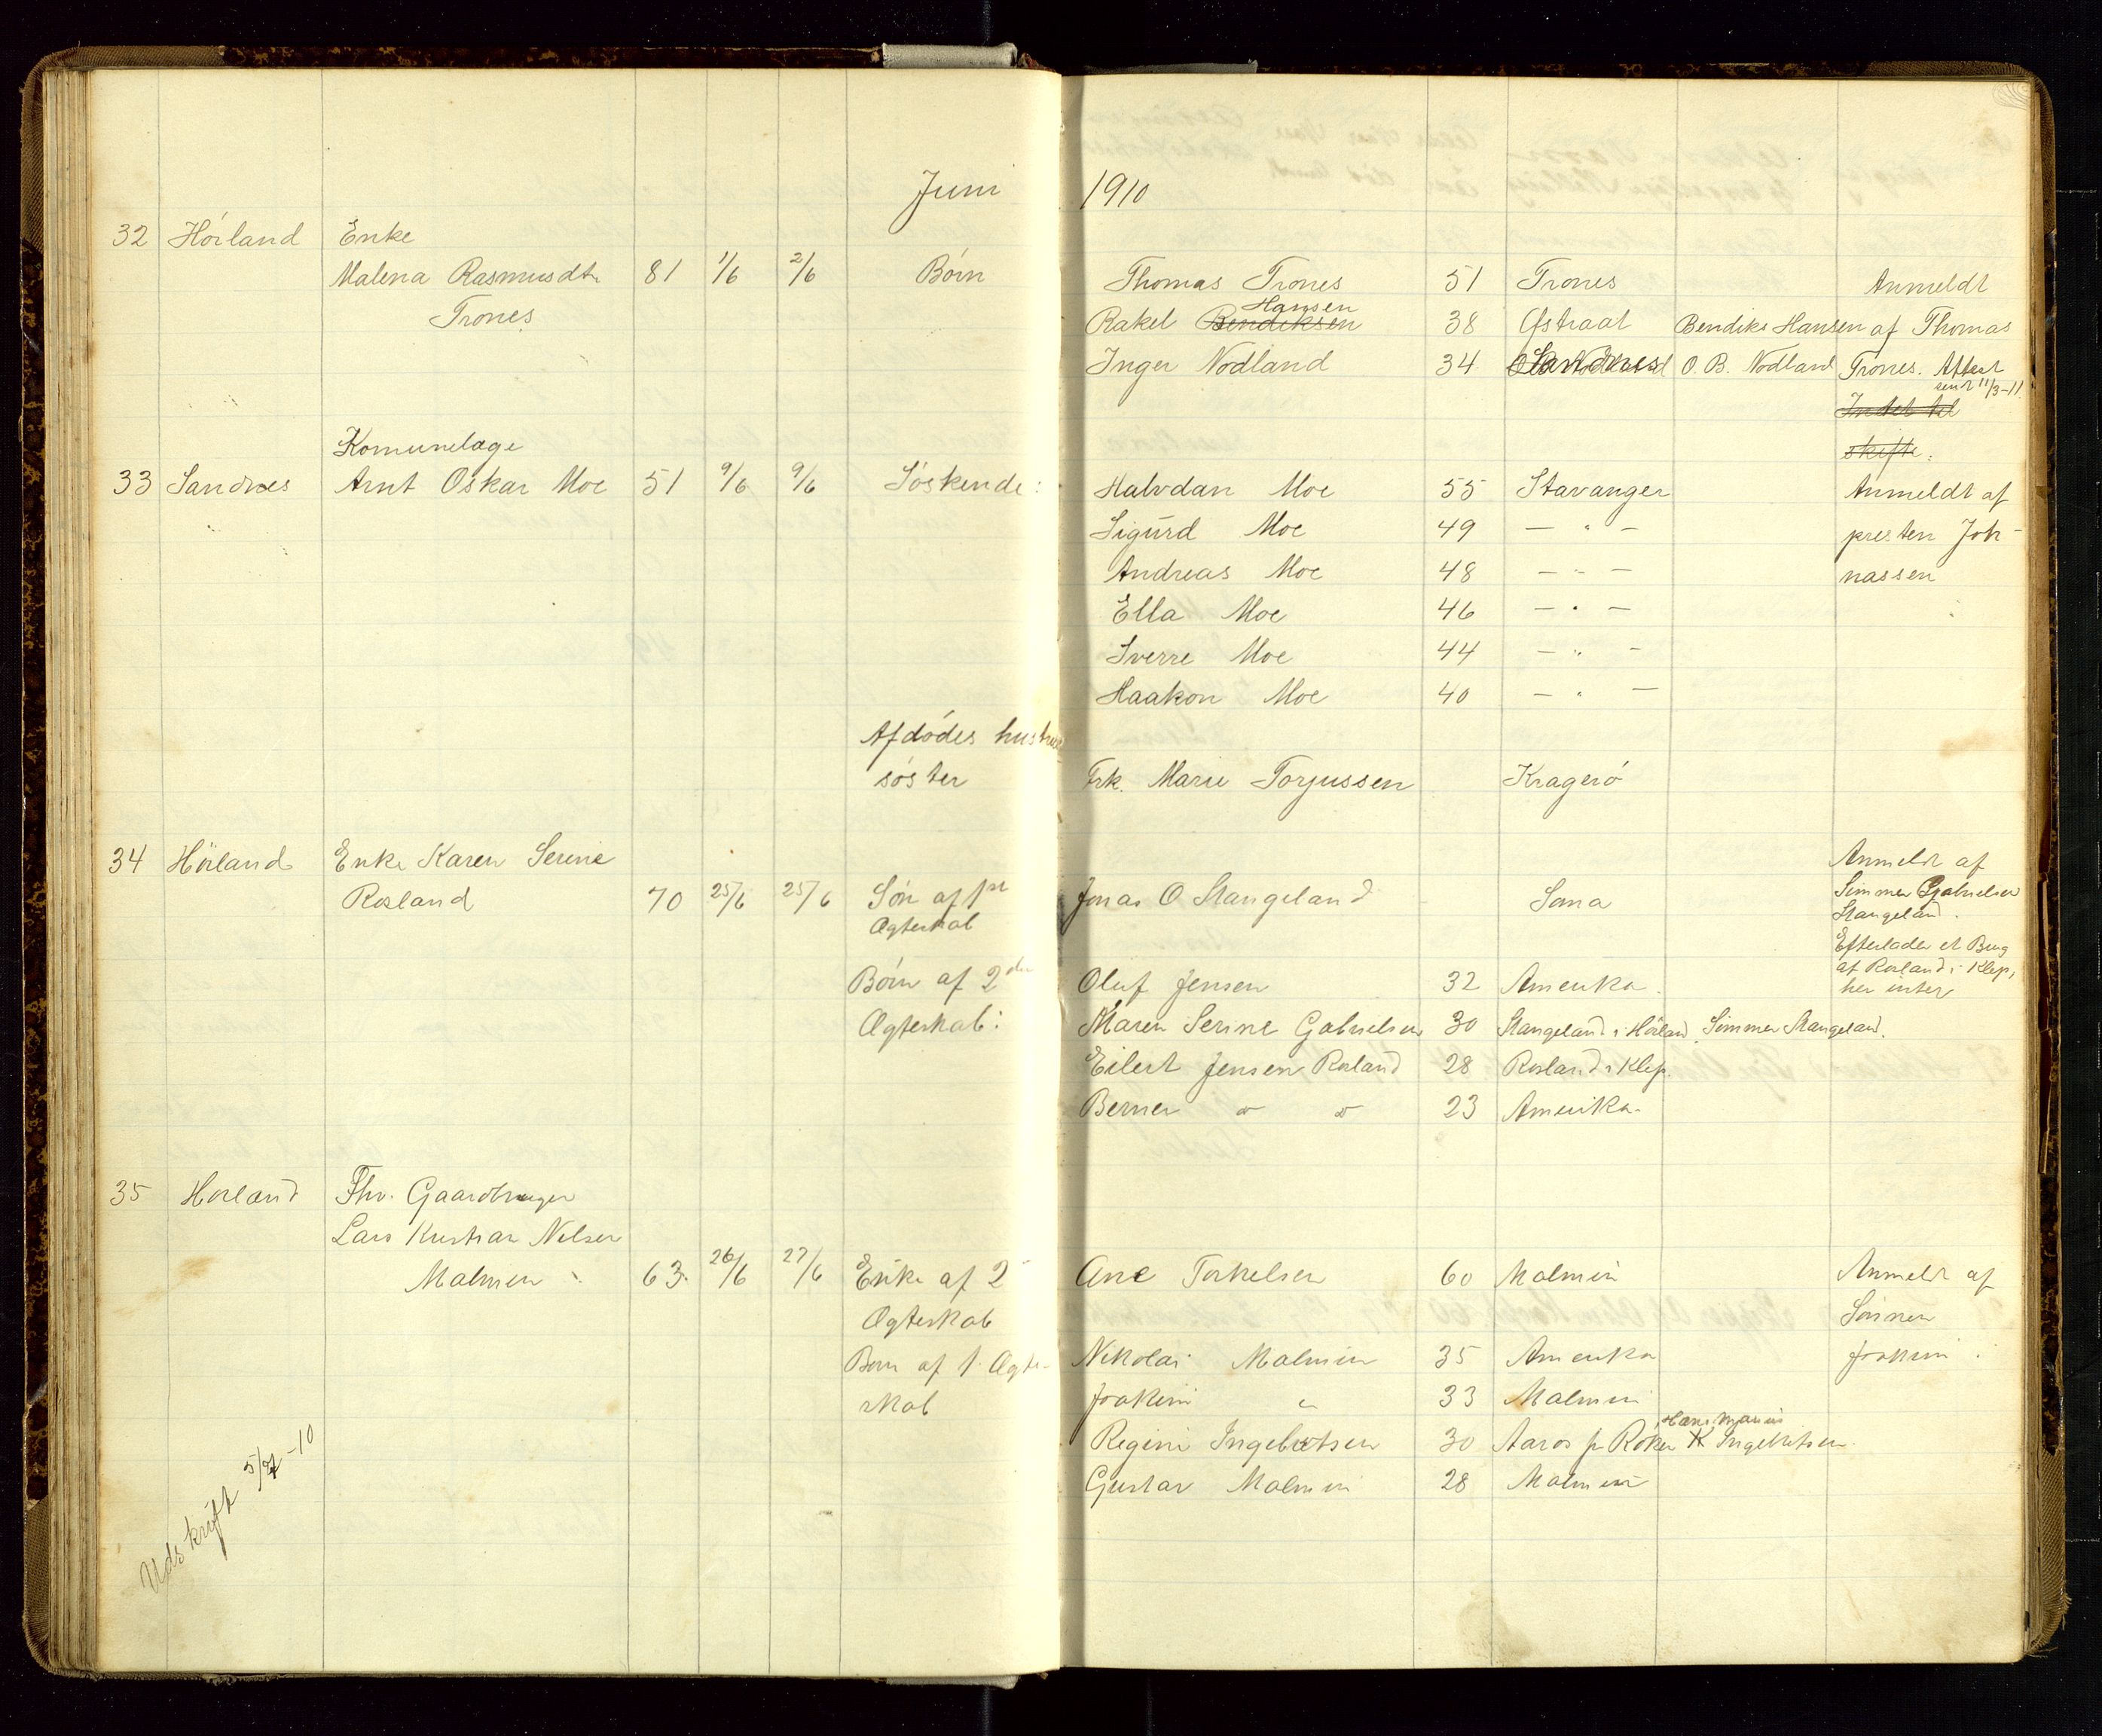 Juni 1910
32 Hóiland Enke
Malena Rasmusdtr 81 1/6 2/6 Börn Thomas Trones 51 Trones Anmeldt
Trones Hansen
Rakel Bendiksen 38 Ostraat Bendiks Hansen af Thomas
Inger Nodland 34 Sandnes O. B. Nodland Trones. Attest
sendt 11/3-11
Indet til
skifte.
Komunelæge
33 Sandnes Arnt Oskar Moe 51 9/6 9/6 Söskende: Halvdan Moe 55 Stavanger Anmeldt af
Sigurd Moe 49 — " — presten Joh-
Andreas Moe 48 — " — nassen
Ella Moe 46 — " —
Sverre Moe 44 — " —
Haakon Moe 40 — " —
Afdödes hustrus
söster Frk. Marie Torjussen Kragerö
34 Höiland Enke Karen Serine Anmeldt af
Rosland 70 25/6 25/6 Sön af 1st Jonas O Stangeland Soma Simmen Gabrielsen
Ægteskab Stangeland.
Efterlader et Brug
Börn af 2det Oluf Jensen 32 Amerika. at Rosland i Klep,
her intet
Ægteskab: Maren Serine Gabrielsen 30 Stangeland i Höiland Simmen Stangeland.
Eilert Jensen Rosland 28 Rosland i Klep.
Berner " " 23 Amerika.
35 Hoiland Fhv. Gaardbruger
Lars Kristian Nilsen
Malmin 63. 26/6 27/6 Enke af 2 Ane Torkelsen 60 Malmin Anmeldt af
Ægteskab Sönnen
Börn af 1. Ægte- Nikolai Malmin 35 Amerika Joakim.
skab Joakim " 33 Malmin
Hans Marius
Regine Ingebretsen 30 Aaros pr Röken K Ingebretsen.
Gustav Malmin 28 Malmin
Udskrift 5/7-10